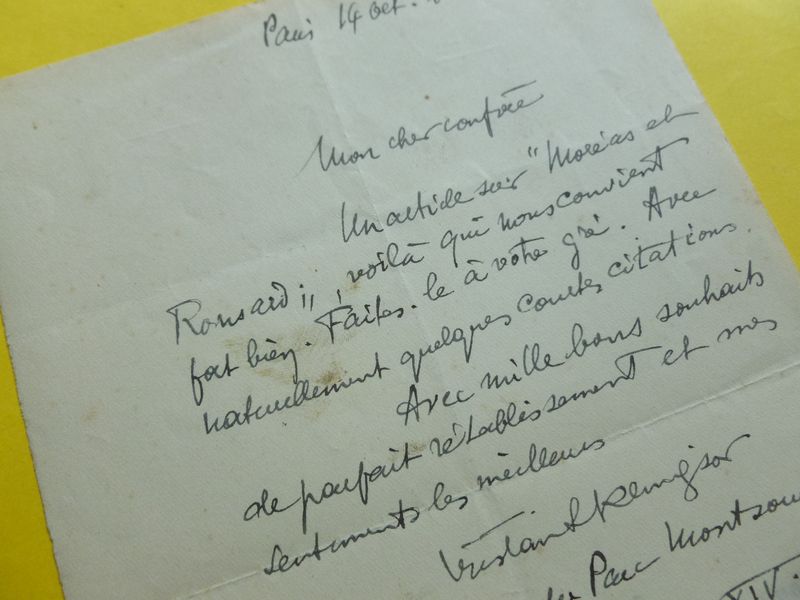 Paris 14 oct.
Mon cher confrère
Un article sur "Moréas et
Ronsard", voilà qui nous convient
fort bien. Faites-le à votre gré. Avec
naturellement quelques courtes citations.
Avec mille bons souhaits
de parfait rétablissement et mes
sentiments les meilleurs
Tristan Klingsor
Parc Montsou
XIV.